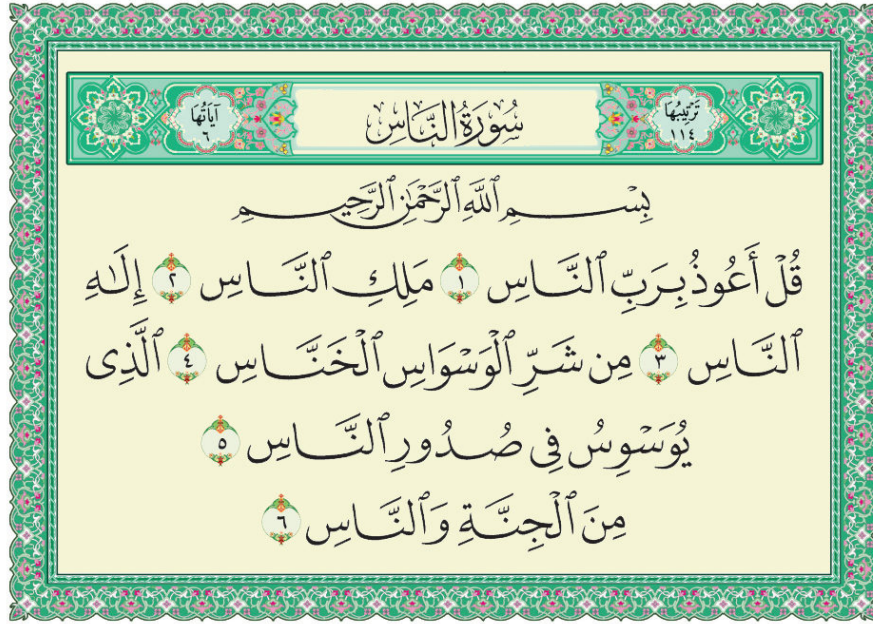 تَرْتِيبُهَا ١١٤
سُورَةُ النَّاسِ
آيَاتُهَا ٦
بِسْمِ ٱللَّهِ ٱلرَّحْمَٰنِ ٱلرَّحِيمِ
قُلْ أَعُوذُ بِرَبِّ ٱلنَّاسِ ١ مَلِكِ ٱلنَّاسِ ٢ إِلَٰهِ
ٱلنَّاسِ ٣ مِن شَرِّ ٱلْوَسْوَاسِ ٱلْخَنَّاسِ ٤ ٱلَّذِى
يُوَسْوِسُ فِى صُدُورِ ٱلنَّاسِ ٥
مِنَ ٱلْجِنَّةِ وَٱلنَّاسِ ٦